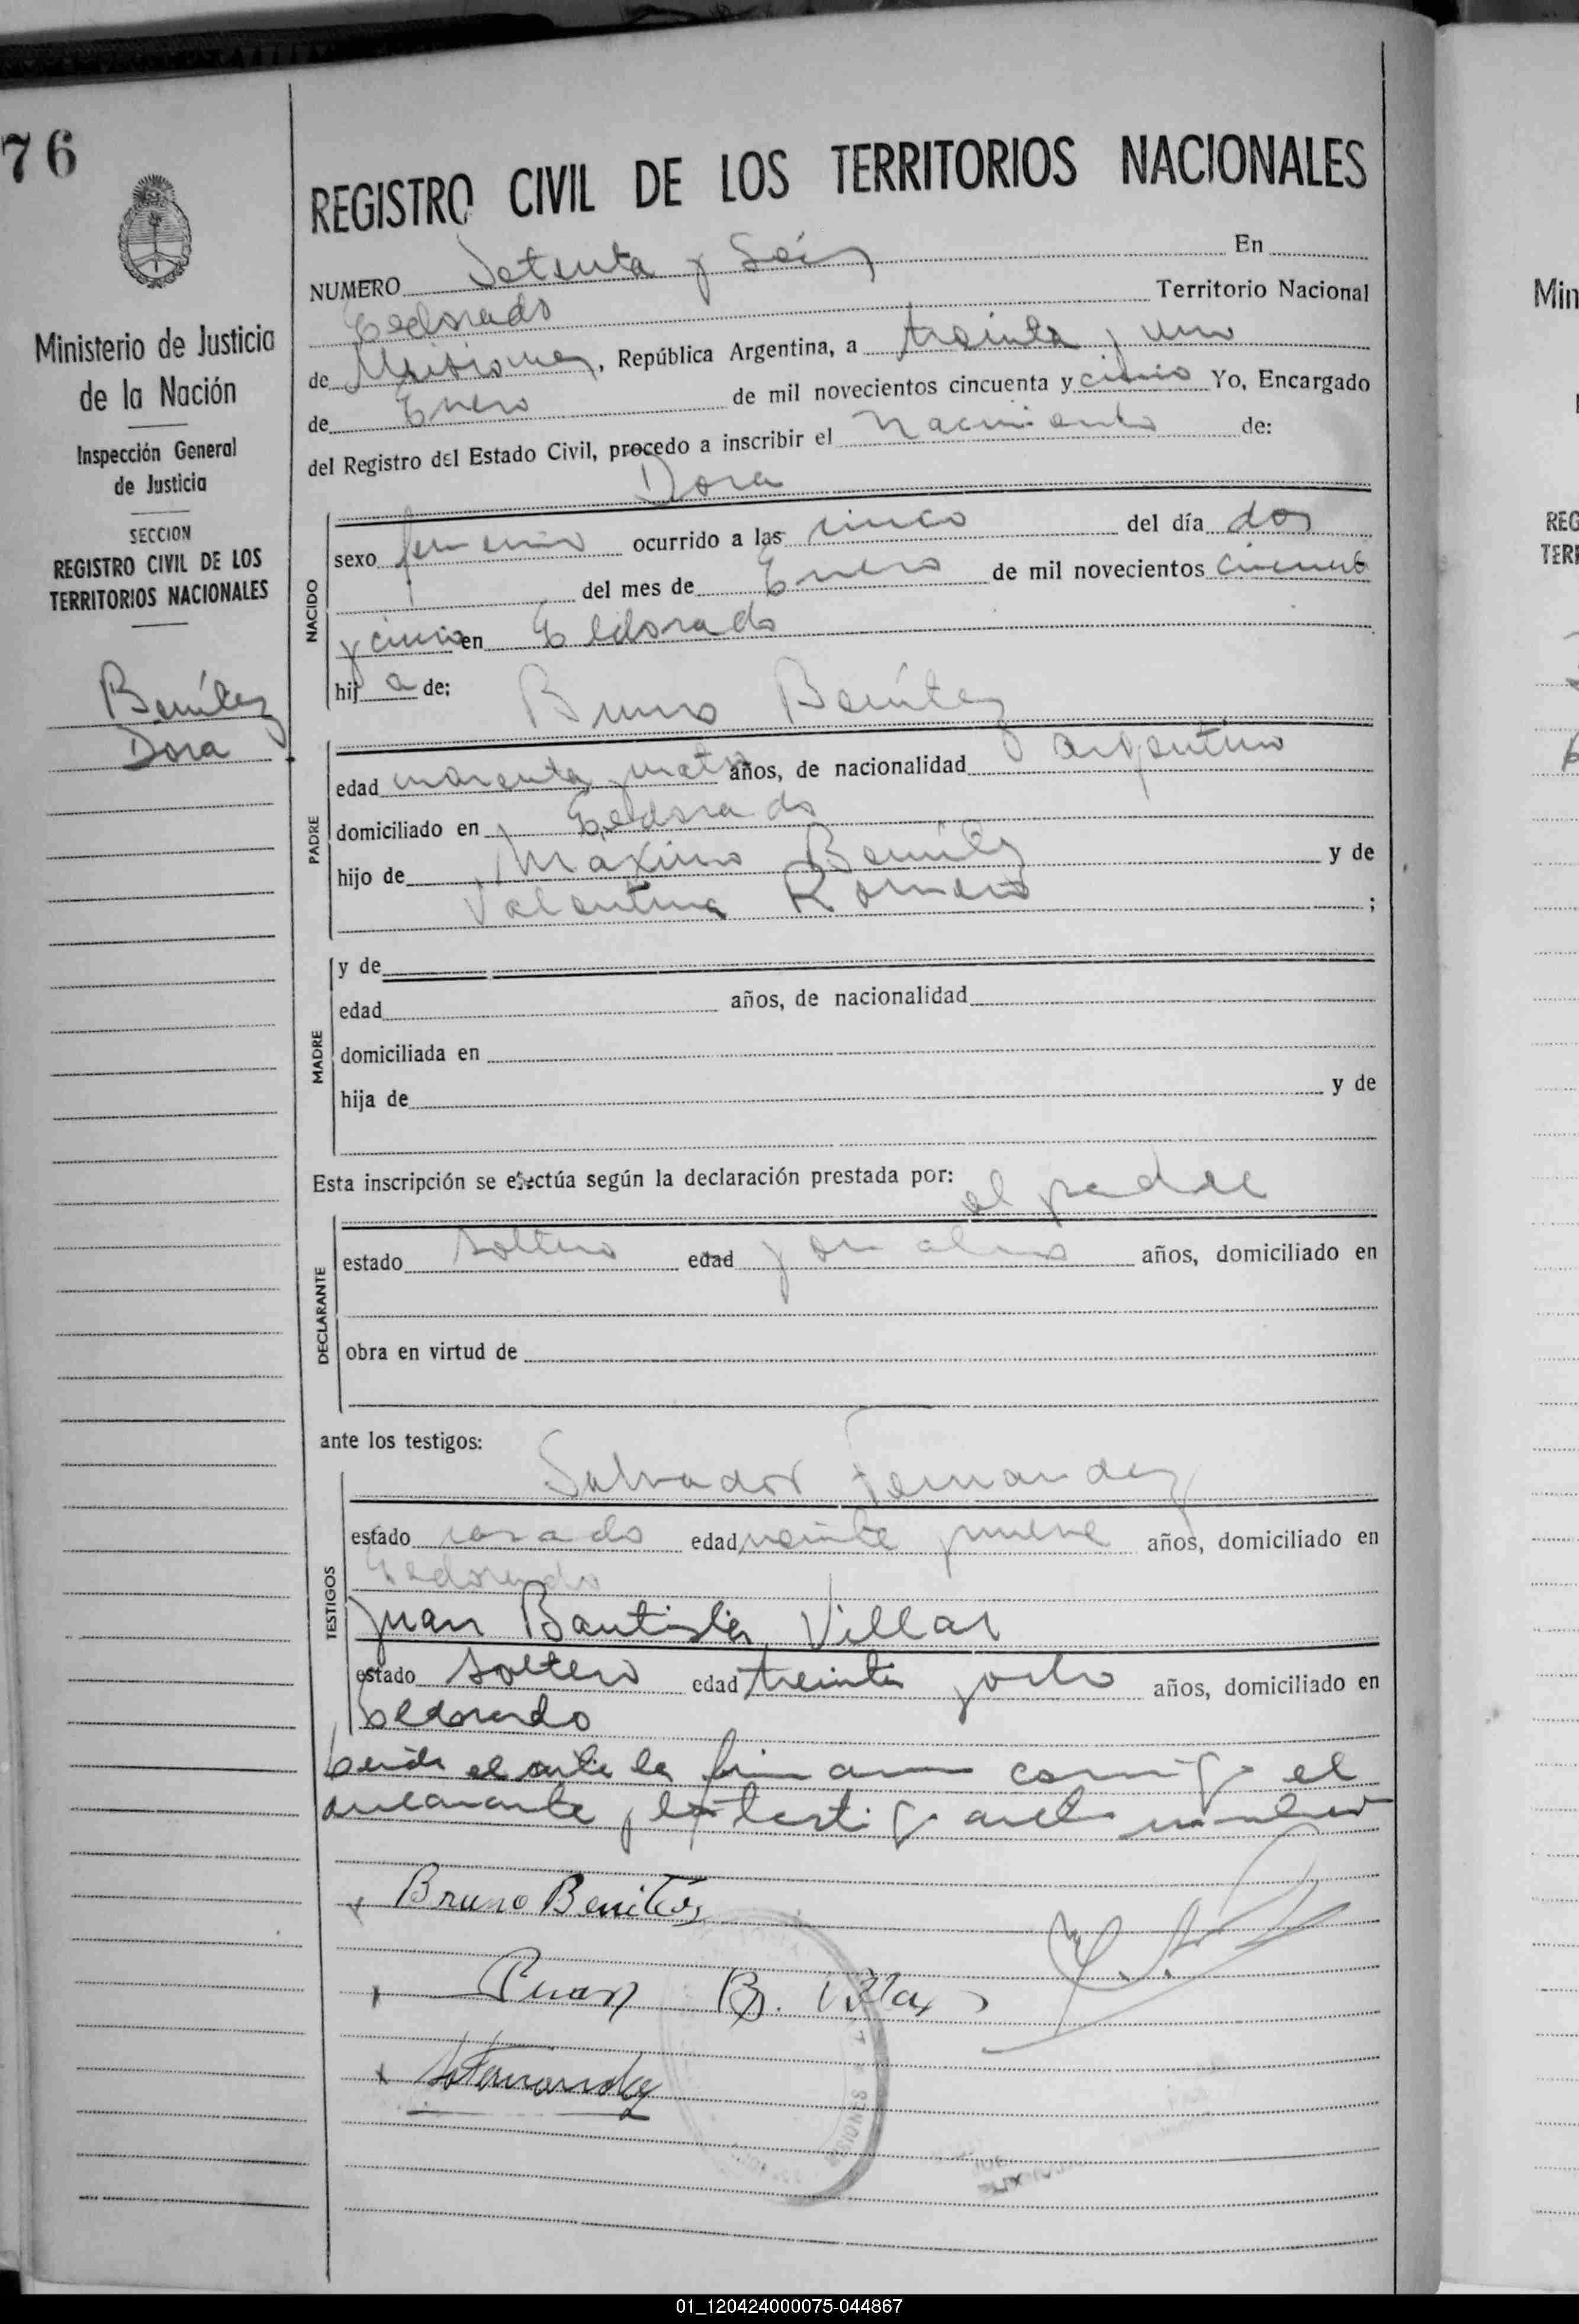 76
Ministerio de Justicia
de la Nación
Inspección General
de Justicia
SECCION
REGISTRO CIVIL DE LOS
TERRITORIOS NACIONALES
Benítez
Dora
REGISTRO CIVIL DE LOS TERRITORIOS NACIONALES
NUMERO Setenta y Seis En
Eldorado Territorio Nacional
de Misiones, República Argentina, a treinta y uno
de Enero de mil novecientos cincuenta y cinco Yo, Encargado
del Registro del Estado Civil, procedo a inscribir el Nacimiento de:
Dora
NACIDO
sexo femenino ocurrido a las cinco del día dos
del mes de Enero de mil novecientos cincuenta
y cinco en Eldorado
hij a de:
Bruno Benítez
PADRE
edad cuarenta y cuatro años, de nacionalidad argentino
domiciliado en Eldorado
hijo de Máximo Benítez y de
Valentina Romero ;
MADRE
y de
edad años, de nacionalidad
domiciliada en
hija de y de
Esta inscripción se efectúa según la declaración prestada por:
el padre
DECLARANTE
estado soltero edad jornalero años, domiciliado en
obra en virtud de
ante los testigos:
Salvador Fernandez
TESTIGOS
estado casado edad veinte y nueve años, domiciliado en
Eldorado
Juan Bautista Villar
estado soltero edad treinta y ocho años, domiciliado en
Eldorado
el acta la firman conmigo el
declarante y los testigos
Bruno Benitez
Juan B. Villar
Fernandez
Min
REG
TERR
01_120424000075-044867